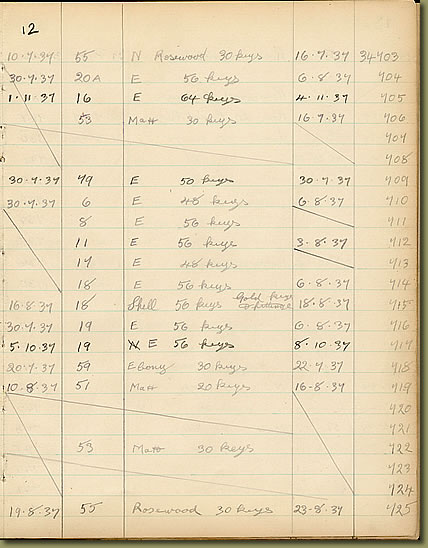 12
10.7.37 55 N Rosewood 30 keys 16.7.37 34703
30.7.37 20A E 56 keys 6.8.37 704
1.11.37 16 E 64 keys 4.11.37 705
53 Matt 30 keys 16.7.37 706
707
708
30.7.37 49 E 50 keys 30.7.37 709
30.7.37 6 E 48 keys 6.8.37 710
8 E 56 keys 711
11 E 56 keys 3.8.37 712
14 E 48 keys 713
18 E 56 keys 6.8.37 714
16.8.37 18 Shell 56 keys Gold keys & fittings 18.8.37 715
30.7.37 19 E 56 keys 6.8.37 716
5.10.37 19 N E 56 keys 8.10.37 717
20.7.37 59 Ebony 30 keys 22.7.37 718
10.8.37 51 Matt 20 keys 16-8.37 719
720
721
53 Matt 30 keys 722
723
724
19.8.37 55 Rosewood 30 keys 23-8.37 725